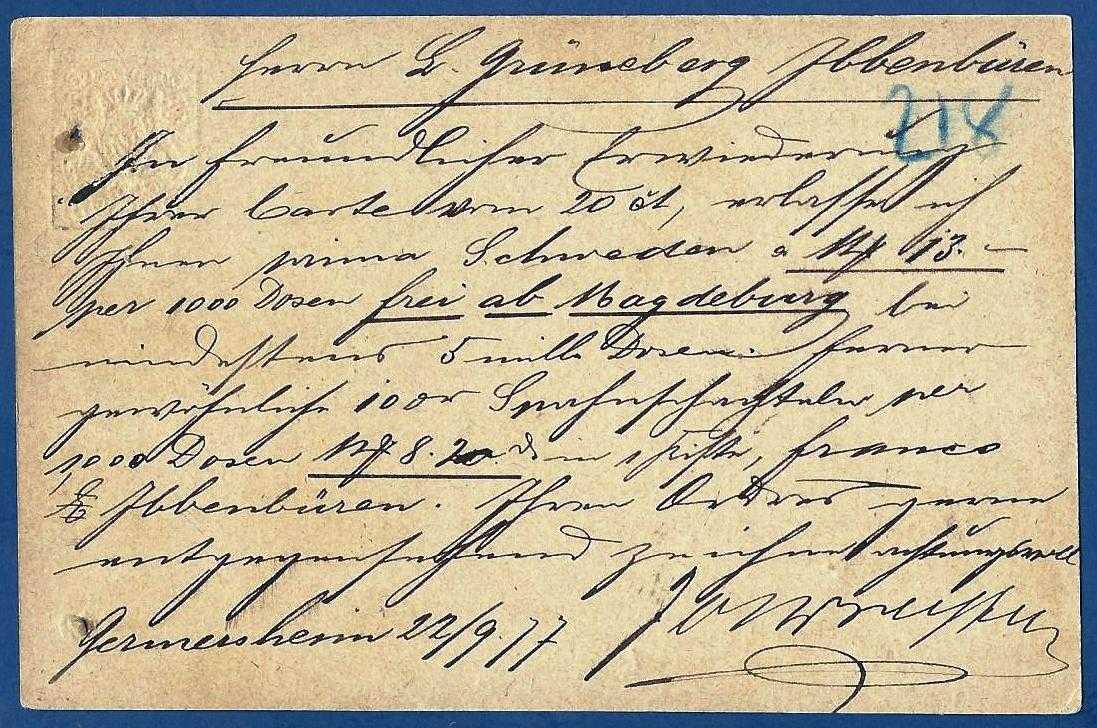 Herrn L. Grüneberg Ibbenbüren
218
In freundlicher Erwiederung
Ihrer Carte vom 20 ct, erlasse ich
Ihnen prima Schweden a Mk 13.–
per 1000 Dosen frei ab Magdeburg bei
mindestens 5 mille Dosen. Ferner
gewöhnliche 100r Spahnschachteln per
1000 Dosen Mk 8.20. in 1 Kiste, franco
Ibbenbüren. Ihren Ordres gerne
entgegensehend zeichne achtungsvoll
Germersheim 22/9.77